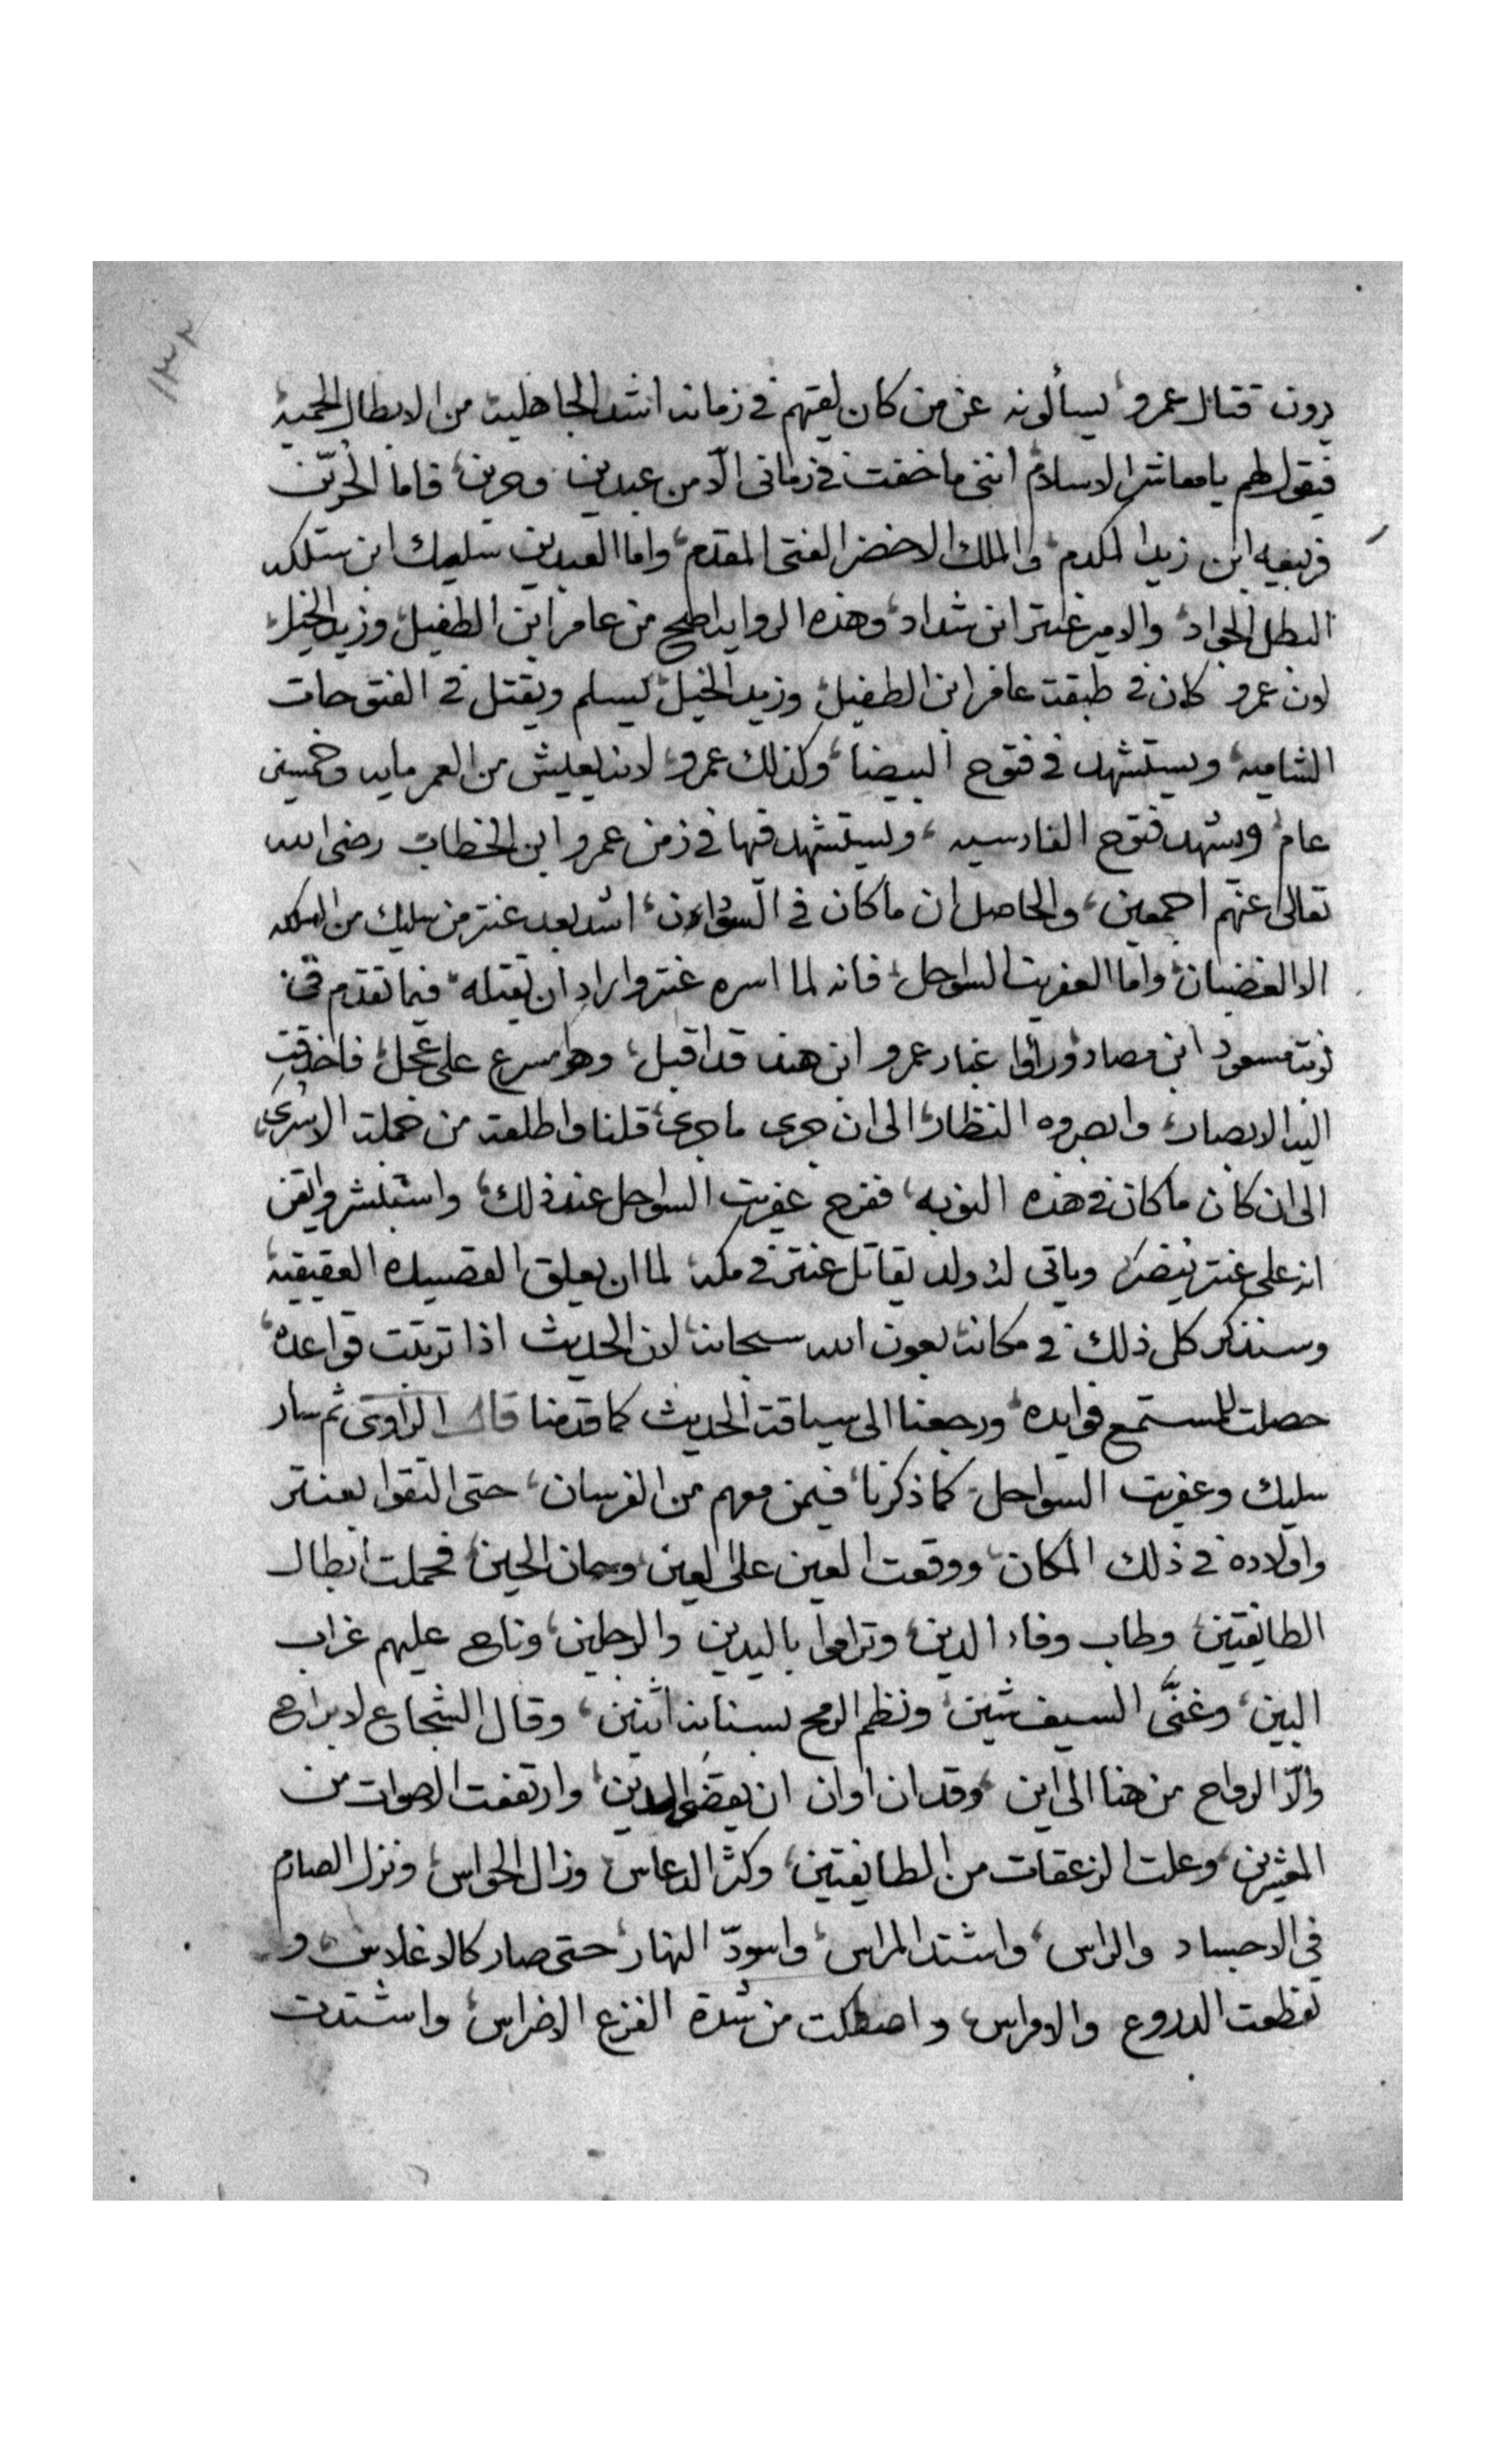 ١٣٢
يرون قتال عمرو يسألونه عن من كان لقيهم في زمانه اشد الجاهلية من الابطال الحمية
فيقول لهم يا معاشر الاسلام انني ما خفت في زماني الّا من عبدين وحرين فاما الحرّين
فربيعه ابن زيد المكدم والملك الاخضر الفتى المقدم واما العبدين سليك ابن سلكه
البطل الجواد والامير عنتر ابن شداد وهذه الرواية اصح من عامر ابن الطفيل وزيد الخيل
لان عمرو كان في طبقة عامر ابن الطفيل وزيد الخيل يسلم ويقتل في الفتوحات
الشاميه ويستشهد في فتوح البيضا وكذلك عمرو لانه يعيش من العمر مايه وخمسين
عام ويشهد فتوح القادسيه ويستشهد فيها في زمن عمرو ابن الخطاب رضى الله
تعالى عنهم اجمعين والحاصل ان ما كان في السودان اشد بعد عنتر من سليك من السلكه
الا الغضبان واما العفريت السواحل فانه لما اسره عنتر واراد ان يقتله فيما تقدم في
نوبة مسعود ابن مصاد وراوا غبار عمرو ابن هند قد اقبل وهو مسرع على عجل فاحدقت
اليه الابصار وابصروه النظار الى ان جرى ما جرى قلنا واطلقه من جملة الاسرى
الى ان كان ما كان في هذه النوبه ففرح عفريت السواحل عند ذلك واستبشر وايقن
انه على عنتر ينصر وياتى له ولد يقاتل عنتر في مكة لما ان يعلق القصيده العقيقية
وسنذكر كل ذلك في مكانه بعون الله سبحانه لان الحديث اذا ترتبت قواعده
حصلت للمستمع فوايده ورجعنا الى سياقة الحديث كما قدمنا قال الراوى ثم سار
سليك وعفريت السواحل كما ذكرنا فيمن معهم من الفرسان حتى التقوا بعنتر
واولاده في ذلك المكان ووقعت العين على العين وحان الحين فحملت ابطال
الطايفتين وطاب وفاء الدين وتراموا باليدين والرجلين وناح عليهم غراب
البين وغنَّى السيف شين ونظم الرمح بسنانه اثنين وقال الشجاع لا براح
والّا الرواح من هنا الى اين وقد ان اوان ان يقضى الدين وارتفعت الاصوات من
المغيرين وعلت الزعقات من الطايفتين وكثر الدعاس وزال الحواس ونزل الصارم
في الاجساد والراس واشتد المراس واسودّ النهار حتى صار كالاغلاس و
تقطعت الدروع والاتراس واصطكت من شدة الفزع الاضراس واشتدت